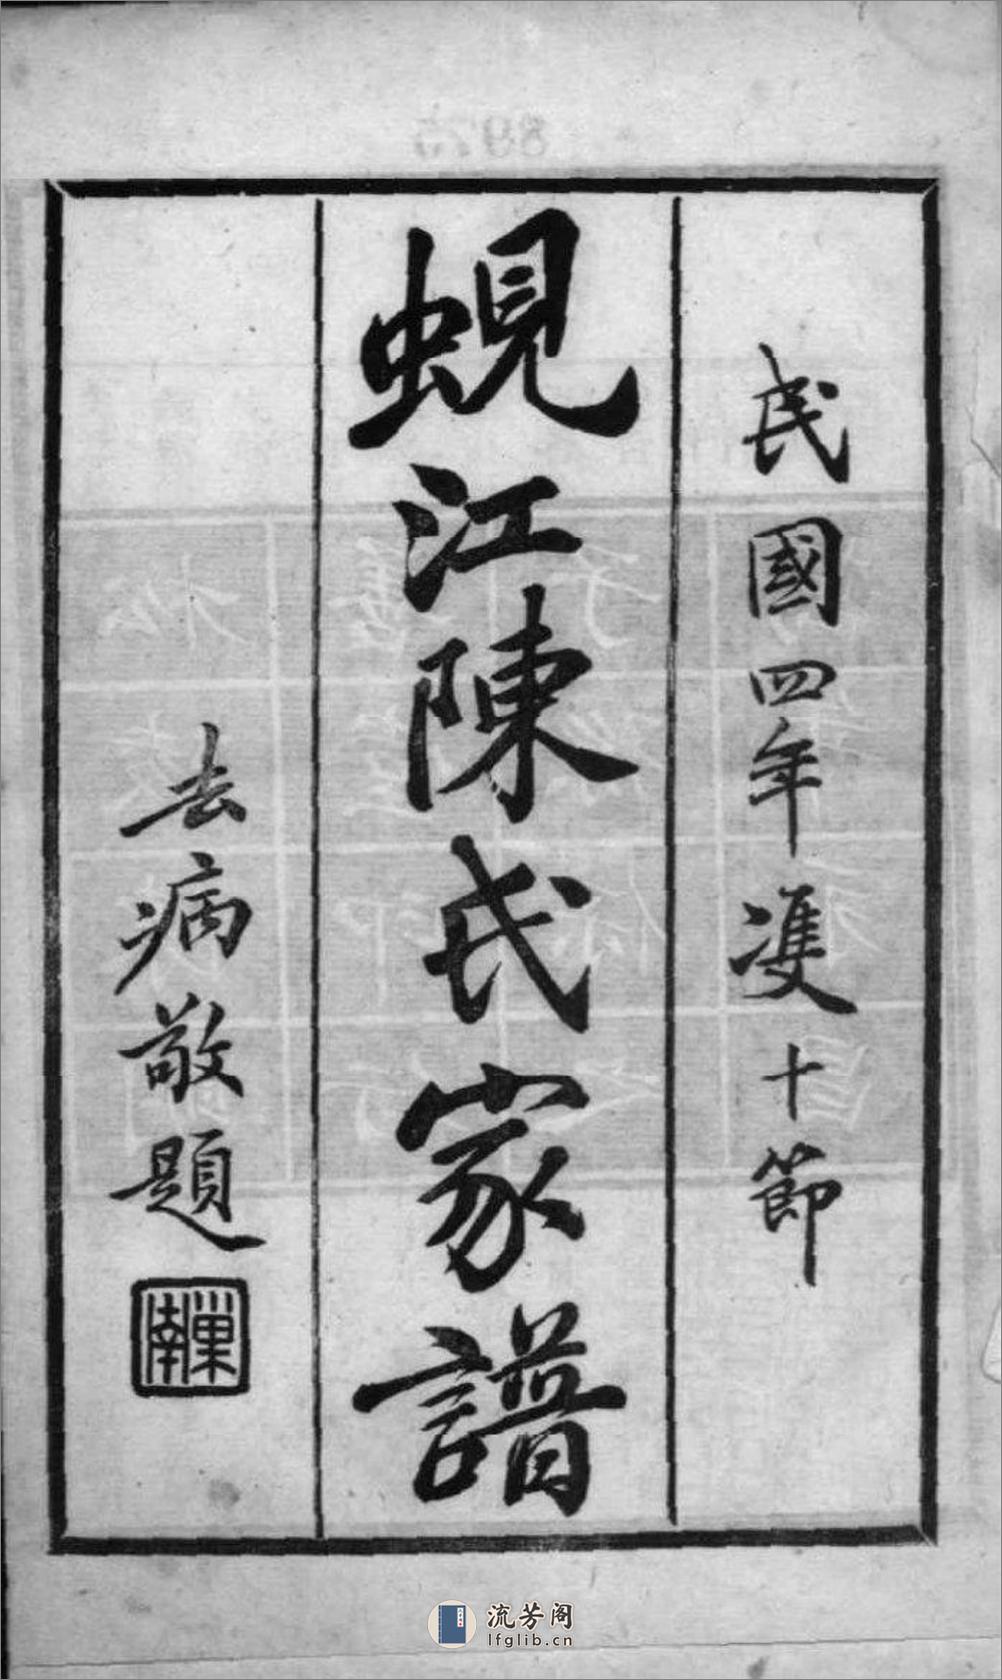 民國四年雙十節
蜆江陳氏家譜
去病敬題
巢南
流芳阁
lfglib.cn